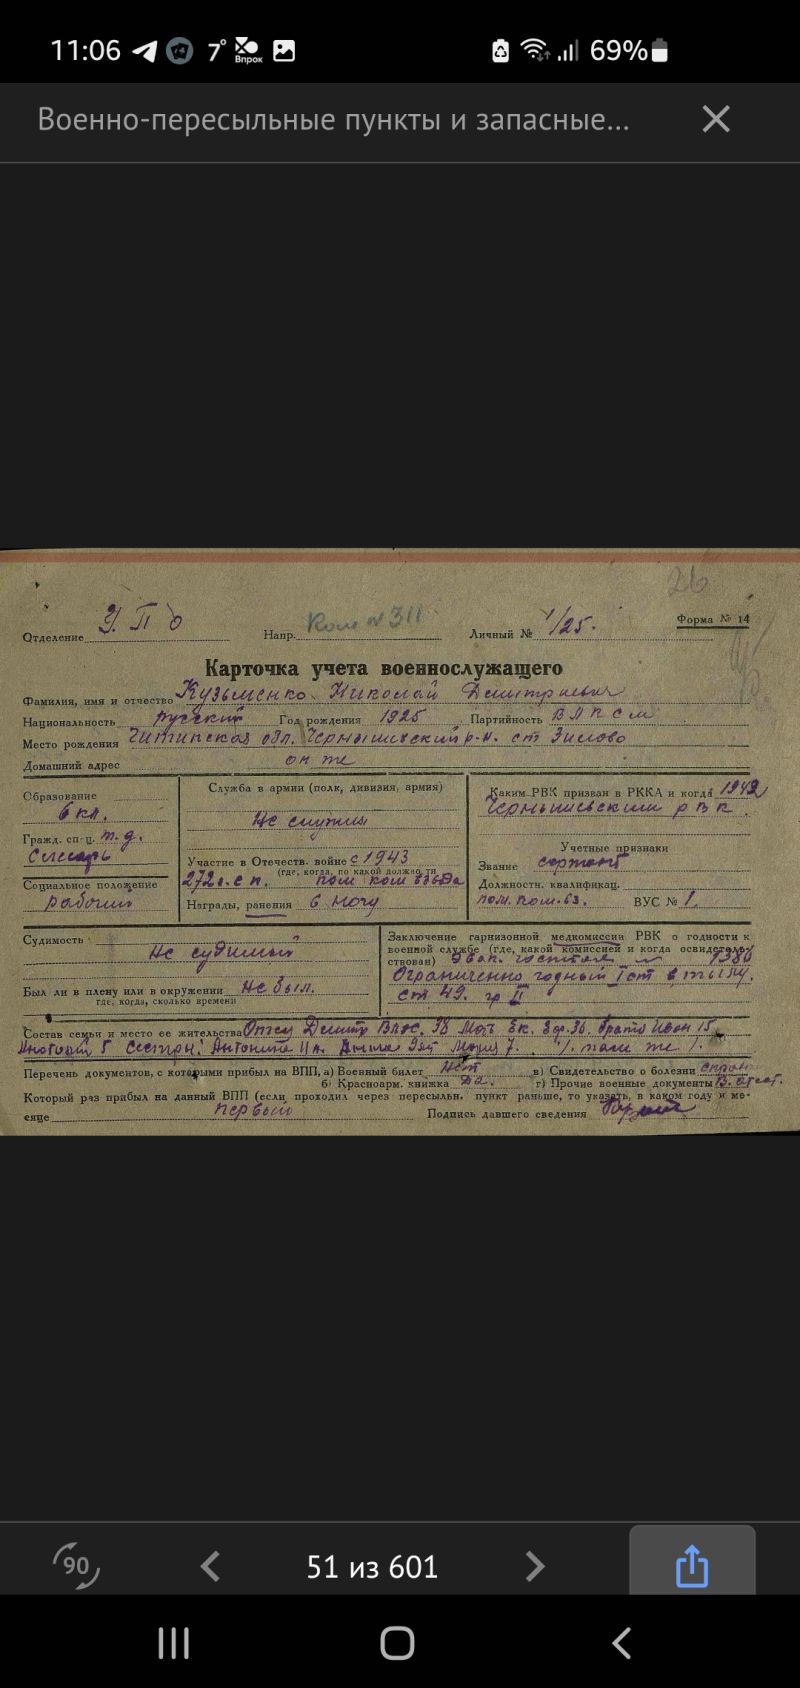 11:06 7° Впрок 69%
Военно-пересыльные пункты и запасные...
26
У.П.О Ком №311 1/25. Форма № 14
Отделение Напр. Личный №
Карточка учета военнослужащего
Фамилия, имя и отчество Кузьменко Николай Дмитриевич
Национальность русский Год рождения 1925 Партийность ВЛКСМ
Место рождения Читинская обл. Чернышевский р-н. ст Зилово
Домашний адрес он же
Образование
6 кл.
Гражд. сп-ц. т.д.
Слесарь
Социальное положение
рабочий
Служба в армии (полк, дивизия, армия)
Не служил
Участие в Отечеств. войне с 1943
(где, когда, по какой должно ти
272 с п. пом ком взвода
Награды, ранения в ногу
Каким РВК призван в РККА и когда 1942
Чернышевским р В К.
Учетные признаки
Звание сержант
Должности. квалификац.
пом. ком. вз. ВУС № 1.
Судимость
Не судимый
Был ли в плену или в окружении не был.
где, когда, сколько времени
Заключение гарнизонной медкомиссии РВК о годности к
военной службе (где, какой комиссией и когда освидетельс-
ствован) Эвак. госпитал № 1386
Ограниченно годный I ст в тылу.
ст 49. гр II
Состав семьи и место ее жительства Отец Дмитр Влас. 38 Мать Ек. 36. брата Иван 15
5 Сестры: Антонина 11 л. Мария 7. /. там же /.
Перечень документов, с которыми прибыл на ВПП, а) Военный билет нет в) Свидетельство о болезни справ
б) Красноарм. книжка да. г) Прочие военные документы В. атест.
Который раз прибыл на данный ВПП (если проходил через пересыльн. пункт раньше, то указать, в каком году и ме-
сяце первый Подпись давшего сведения
90 51 из 601